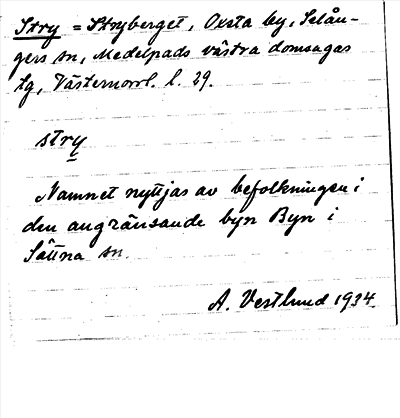 Stry = Stryberget, Oxsta by, Selån-
gers sn, Medelpads västra domsagas
tg, Västernorrl. l. 29.
stry
Namnet nyttjas av befolkningen i
den angränsande byn Byn i
Sättna sn.
A. Vestlund 1934